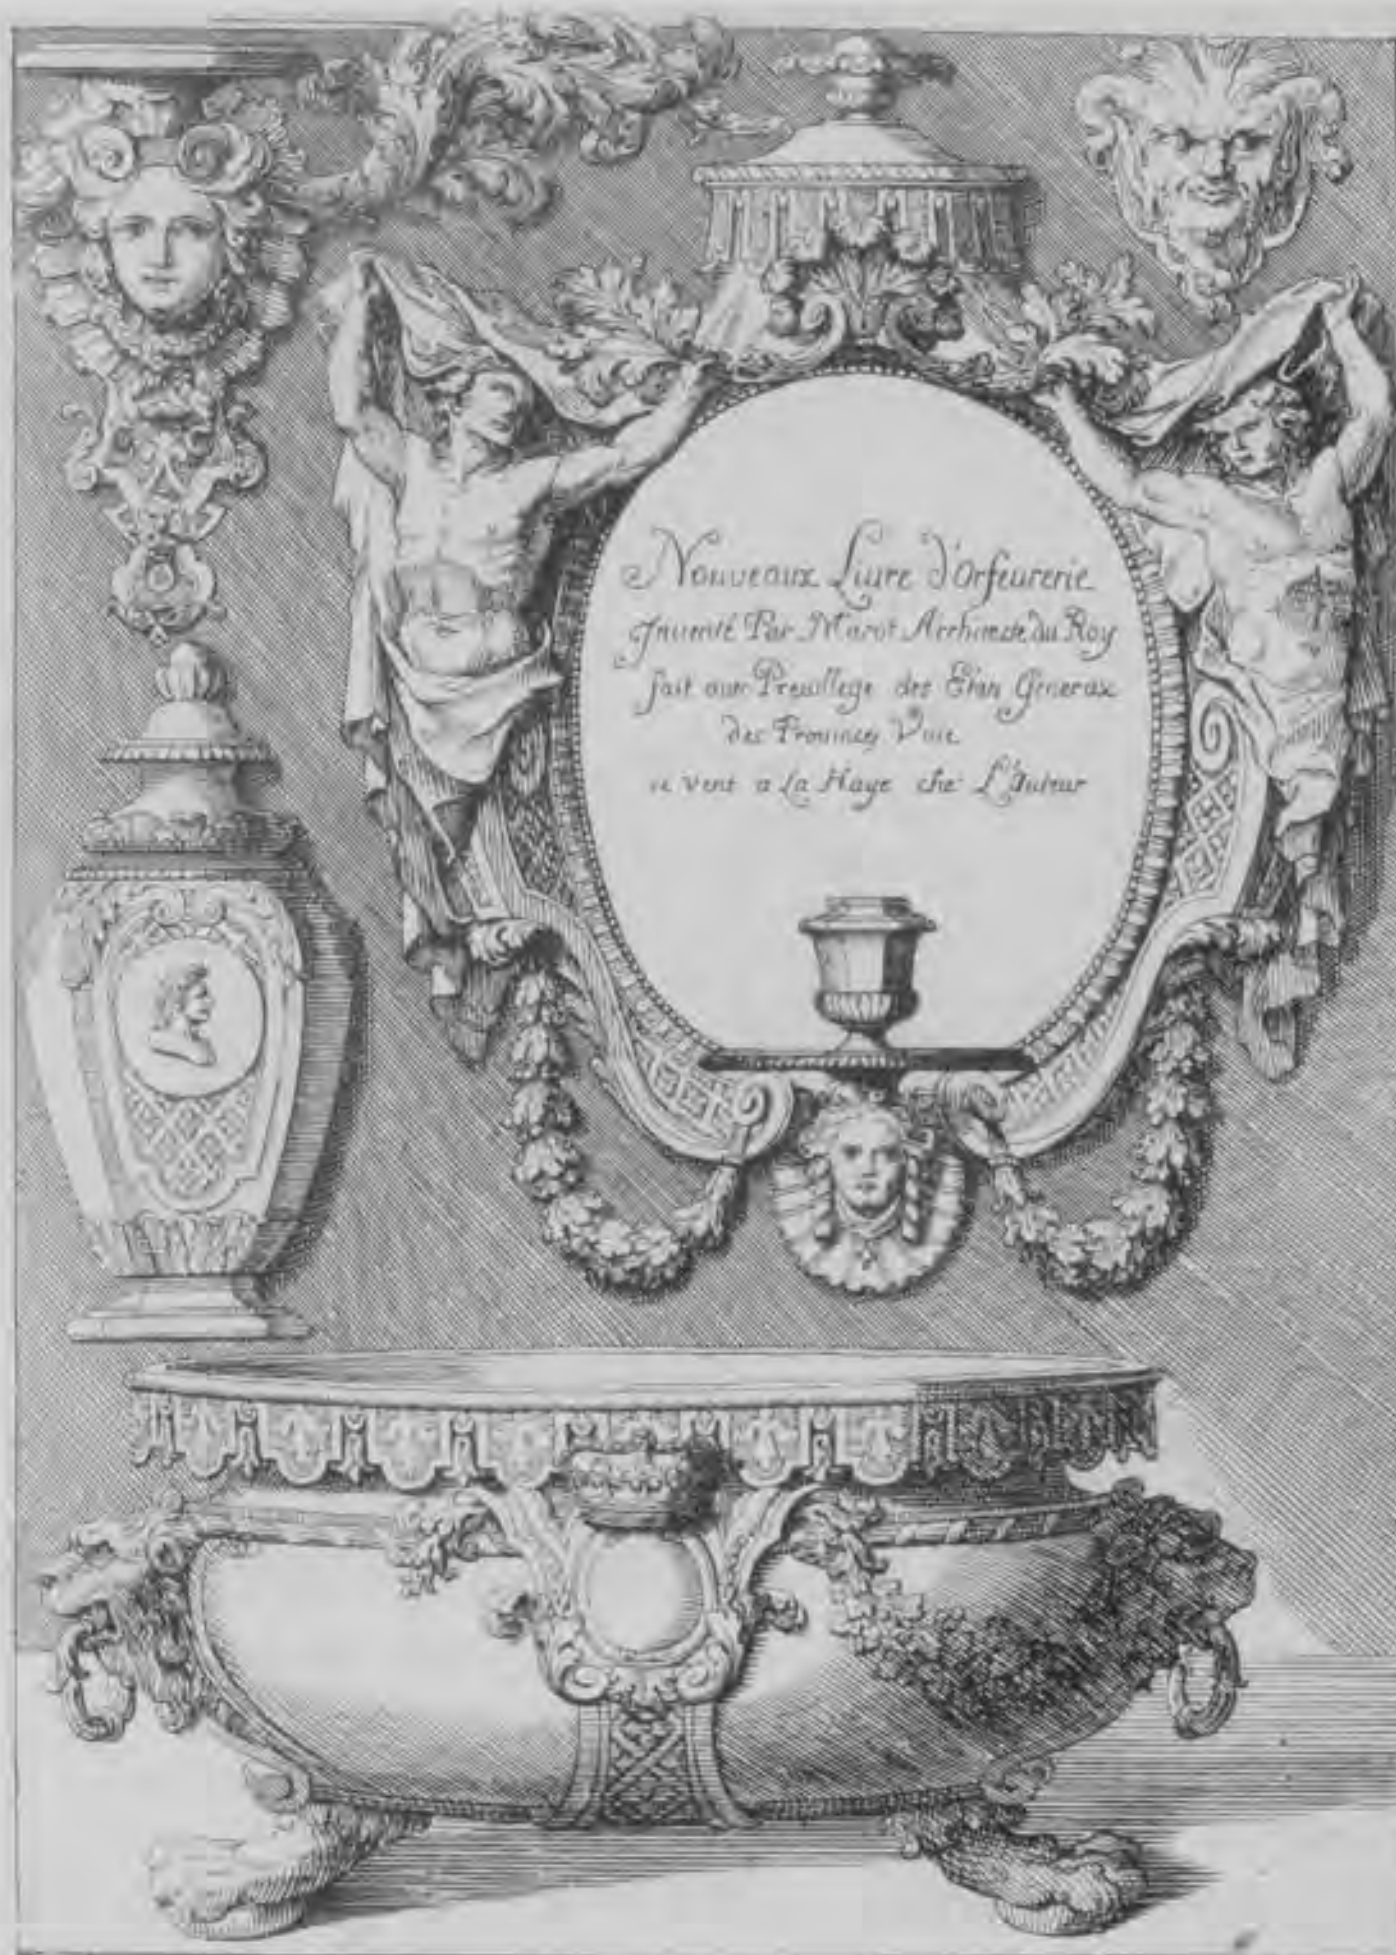 Nouveaux Liure d'Orfeurerie
Inuenté Par Marot Architecte du Roy
fait auec Preuillege des Etats Generaux
des Prouinces Vnie
se vent a La Haye ché L'Auteur